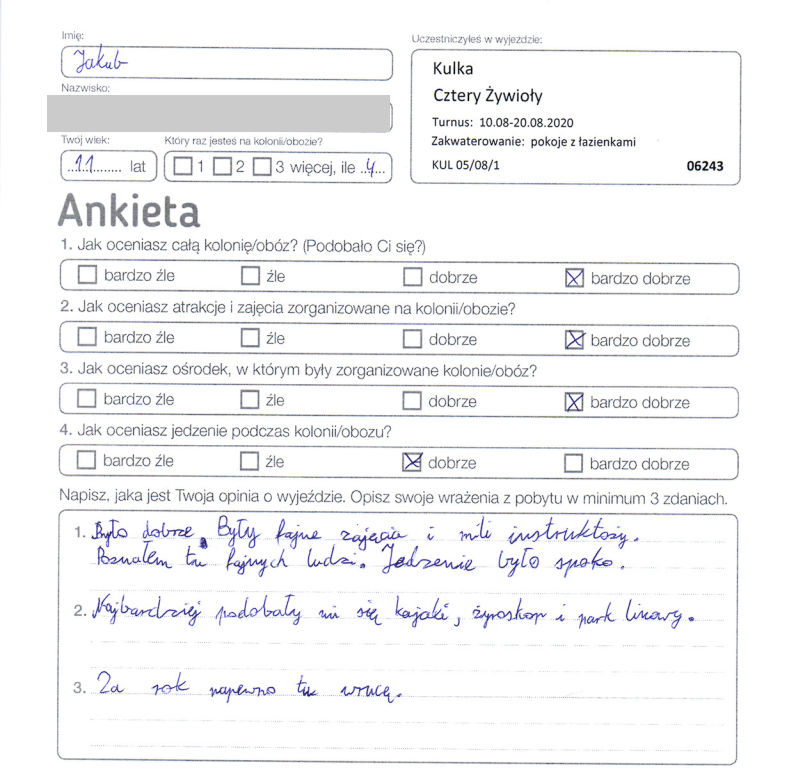 Imię:
Jakub
Nazwisko:
Twój wiek:
11 lat
Który raz jesteś na kolonii/obozie?
1 2 3 więcej, ile 4
Uczestniczyłeś w wyjeździe:
Kulka
Cztery Żywioły
Turnus: 10.08-20.08.2020
Zakwaterowanie: pokoje z łazienkami
KUL 05/08/1 06243
Ankieta
1. Jak oceniasz całą kolonię/obóz? (Podobało Ci się?)
bardzo źle źle dobrze bardzo dobrze
2. Jak oceniasz atrakcje i zajęcia zorganizowane na kolonii/obozie?
bardzo źle źle dobrze bardzo dobrze
3. Jak oceniasz ośrodek, w którym były zorganizowane kolonie/obóz?
bardzo źle źle dobrze bardzo dobrze
4. Jak oceniasz jedzenie podczas kolonii/obozu?
bardzo źle źle dobrze bardzo dobrze
Napisz, jaka jest Twoja opinia o wyjeździe. Opisz swoje wrażenia z pobytu w minimum 3 zdaniach.
1. Było dobrze. Były fajne zajęcia i mili instruktoży.
Poznałem tu fajnych ludzi. Jedzenie było spoko.
2. Najbardziej podobały mi się kajaki, żyroskop i park linowy.
3. Za rok napewno tu wrucę.